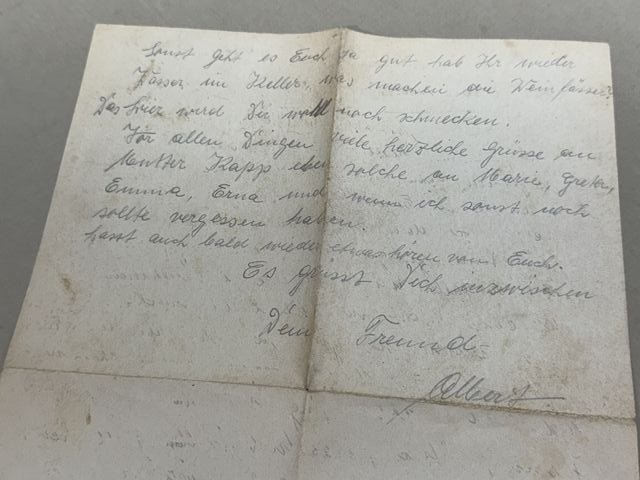 Sonst geht es Euch ja gut hab Ihr wieder
Wasser im Keller, was machen die Weinfässer?
Das hier wird Dir wohl noch schmecken.
Vor allen Dingen viele herzliche Grüsse an
Mutter Kapp eben solche an Marie, Gretel,
Emma, Erna und wenn ich sonst noch
sollte vergessen haben.
Lasst auch bald wieder etwas hören von Euch.
Es grüsst Dich inzwischen
Dein Freund
Albert